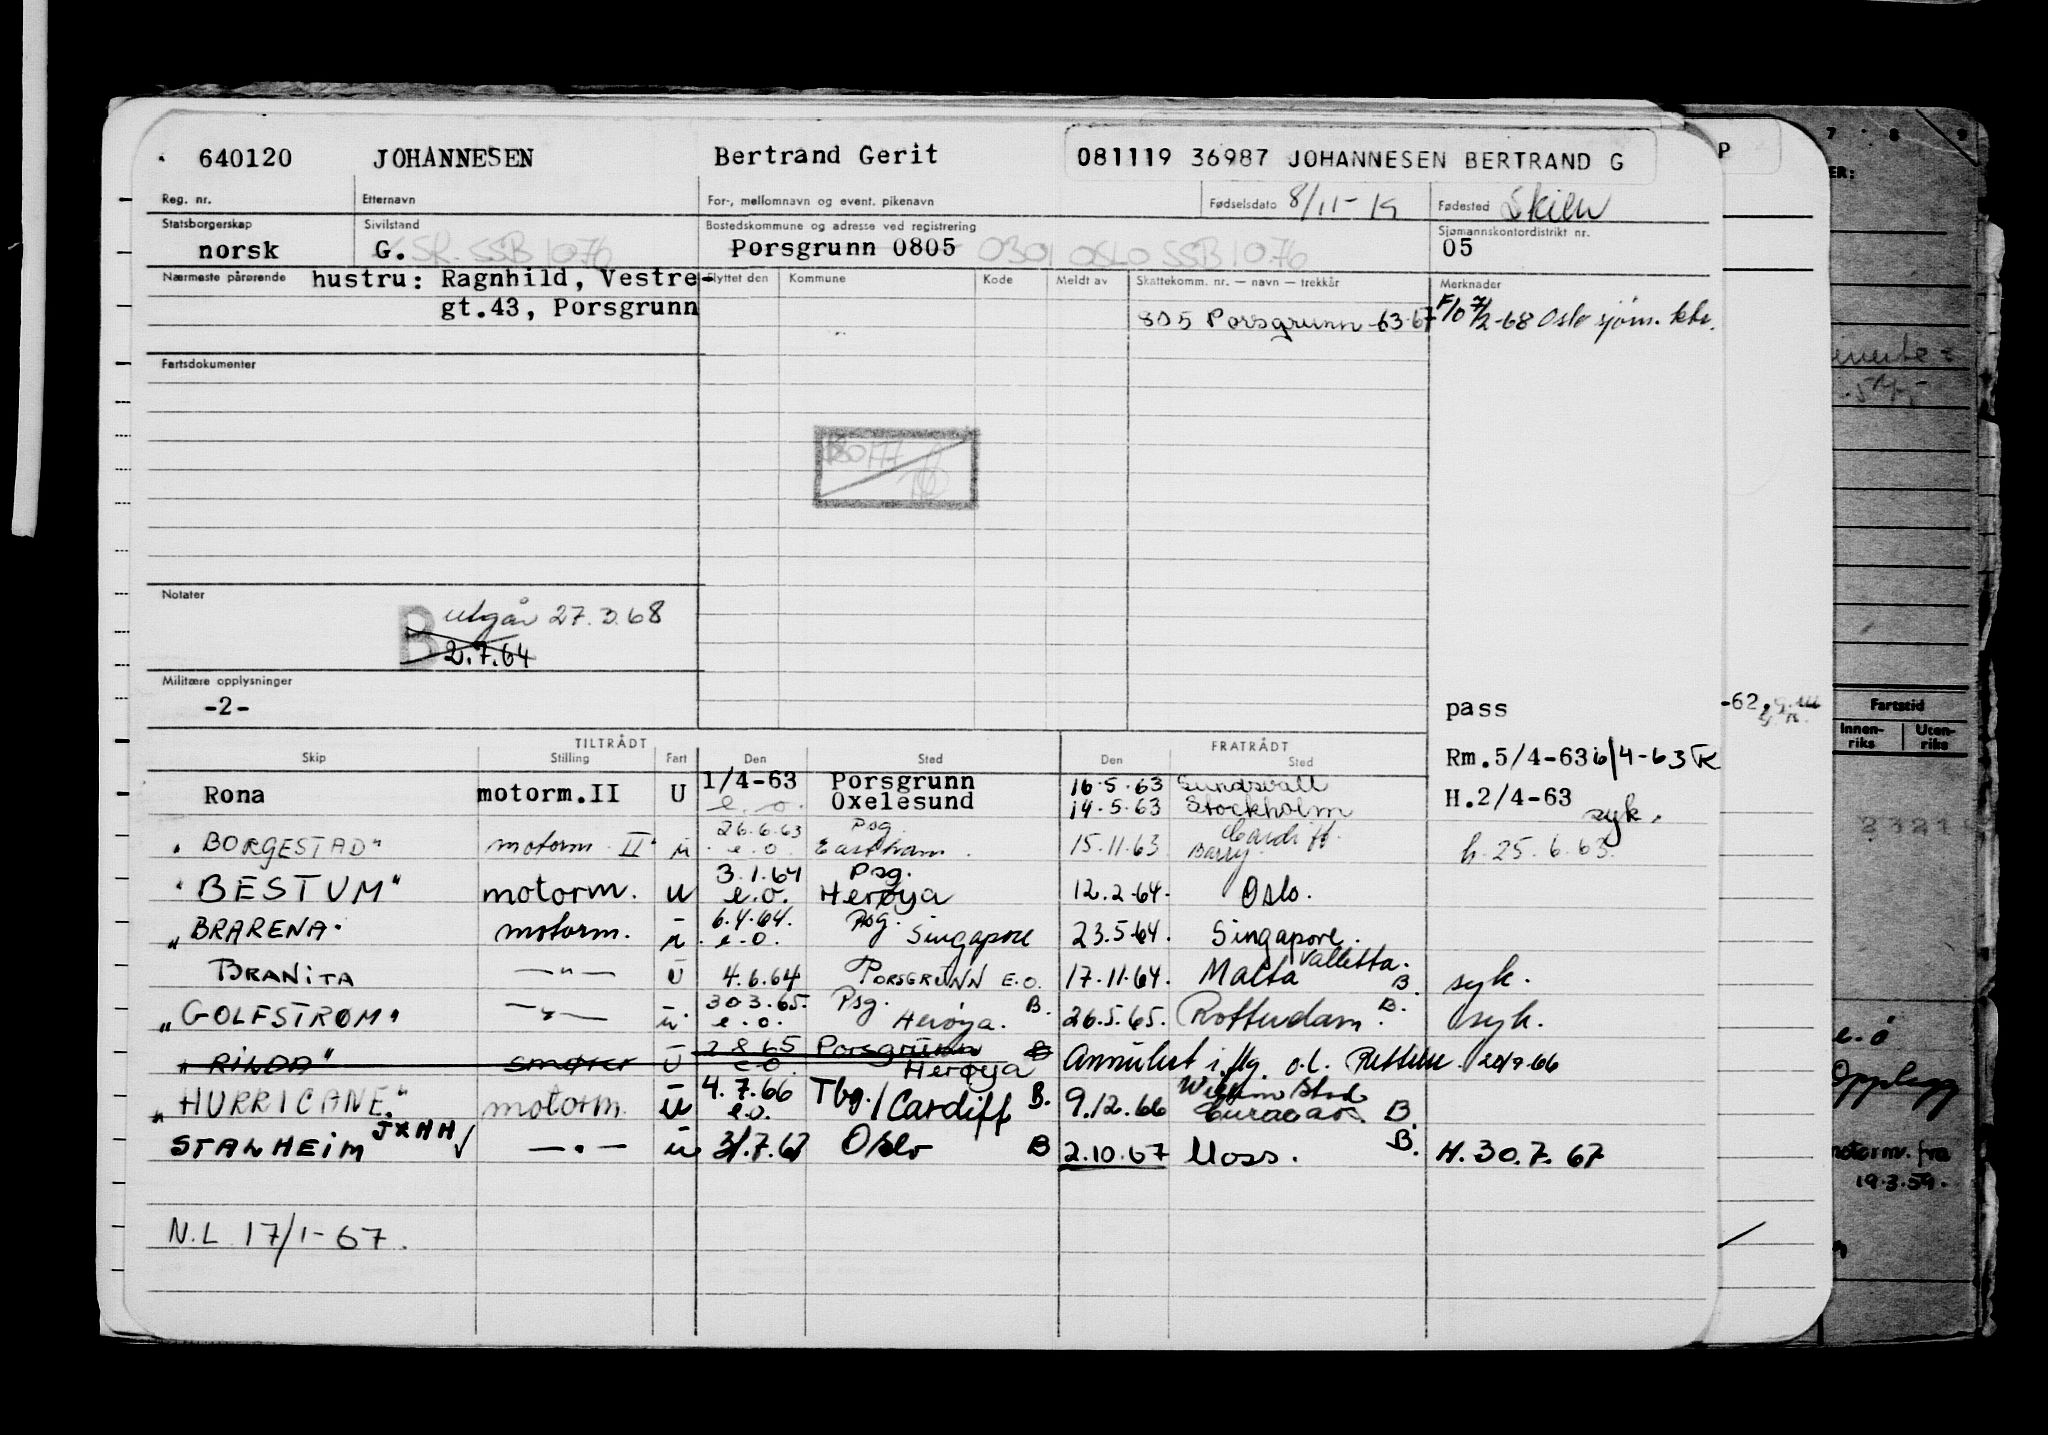 640120 JOHANNESEN Bertrand Gerit 081119 36987 JOHANNESEN BERTRAND G
Reg. nr. Etternavn For-, mellomnavn og event. pikenavn Fødselsdato 8/11-19 Fødested Skien
Statsborgerskap Sivilstand Bostedskommune og adresse ved registrering Sjømannskontordistrikt nr.
norsk G. SR. SSB 1076 Porsgrunn 0805 0301 OSLO SSB 10.76 05
Nærmeste pårørende hustru: Ragnhild, Vestre- Flyttet den Kommune Kode Meldt av Skattekomm. nr. — navn — trekkår Merknader
gt.43, Porsgrunn 805 Porsgrunn -63-67 F/o 7/2-68 Oslo sjøm. ktr.
Fartsdokumenter
Notater
B utgår 27.3.68
2.7.64
Militære opplysninger
-2- pass -62,
TILTRÅDT FRATRÅDT
Skip Stilling Fart Den Sted Den Sted Rm.5/4-63 6/4-63 TK
Rona motorm.II U 1/4-63 Porsgrunn 16.5.63 Sundsvall
e.o. Oxelesund 14.5.63 Stockholm H.2/4-63 syk.
"BORGESTAD" motorm. II u 26.6.63 Psg. 15.11.63 Cardiff.
e.o. Eastham. Barry h. 25.6.63.
"BESTUM" motorm. u 3.1.64 Psg. 12.2-64. Oslo.
e.o. Herøya
"BRARENA" motorm. u 6.4.64. Psg. 23.5.64. Singapore.
e.o. Singapore
BRANITA —"— U 4.6.64 PORSGRUNN E.O. 17.11.64. Malta Valletta. B. syk.
"GOLFSTRØM" —"— u 30.3.65. Psg. B. 26.5.65. Rotterdam. B. syk.
e.o. Herøya.
"RINDA" smører U 2 8 65 Porsgrunn B Annulert i flg. o.l. Rettelse 20/9-66
e.o. Herøya
"HURRICANE" motorm. u 4.7.66 Tbg./Cardiff B. 9.12.66 Willemstad
e.o. Curacao. B.
STALHEIM JXHH √ —"— u 31.7.67 Oslo B 2.10.67 Moss. B. H. 30.7.67
N.L 17/1-67.
7 8 9
P
ER:
Fartstid
Innen-riks Uten-riks
e.ø
Opplegg
motorm. fra
19.3.59.